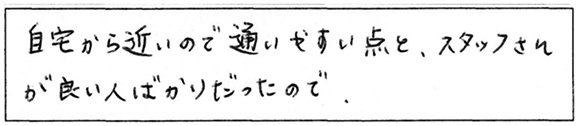 自宅から近いので通いやすい点と、スタッフさん
が良い人ばかりだったので.